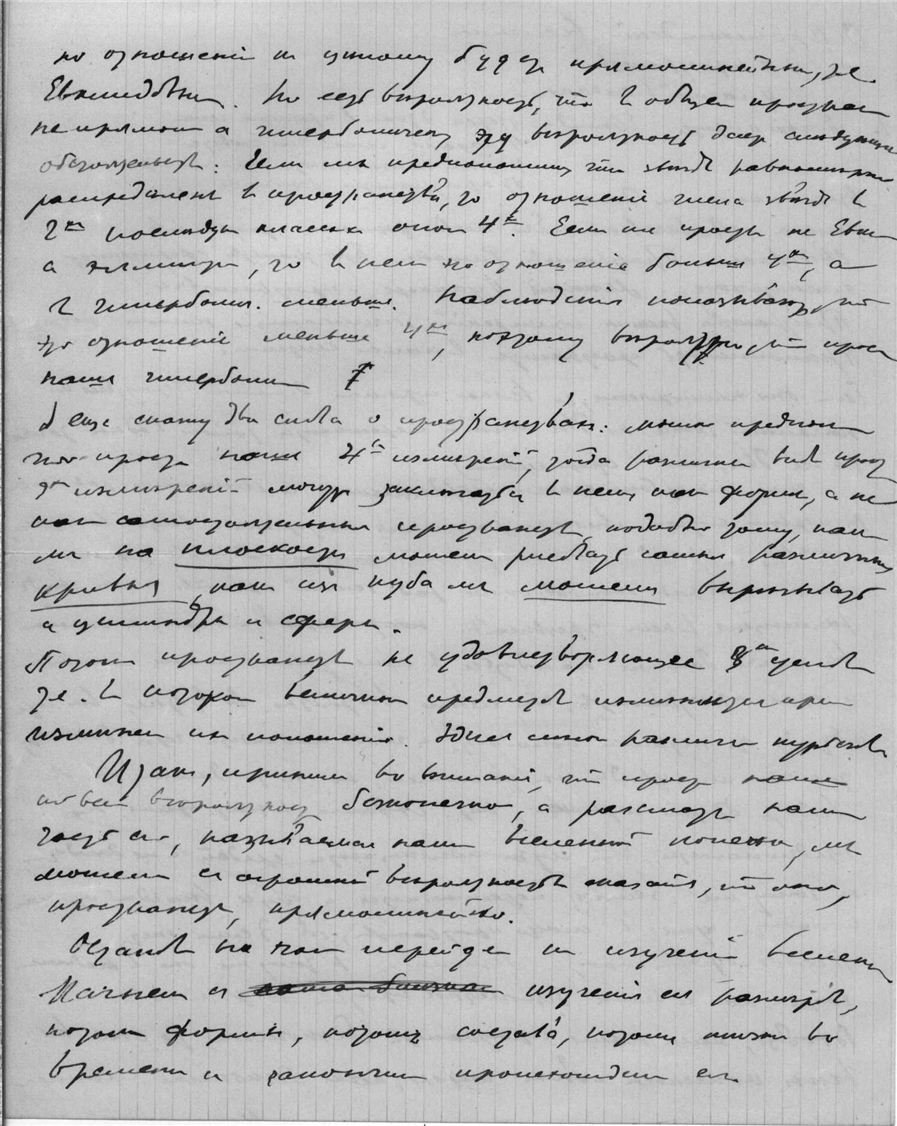 по отношенію къ цѣлому будетъ прямолинейны, т.е.
Евклидовы. Но есть вѣроятность, что въ общемъ простран
не прямол а гиперболическ эту вѣроятность даетъ слѣдующ
обстоятельст: Если мы предположимъ что звѣзды равномѣрно
распредѣлены въ пространствѣ, то отношеніе числа звѣздъ въ
2хъ послѣдую классахъ около 4хъ. Если же простр не Евкл
а эллиптич, то въ немъ это отношеніе больше 4хъ, а
въ гиперболич. меньше. Наблюденія показываютъ, что
это отношеніе меньше 4хъ, поэтому вѣроятно, что прост
наше гиперболич
Я еще скажу два слова о пространствахъ: можно предполож
что простр наше 4хъ измѣреній, тогда различны виды прост
3хъ измѣреній могутъ заключаться въ немъ какъ формы, а не
какъ самостоятельныя пространства, подобно тому, какъ
мы на плоскости можемъ рисовать самыя различныя
кривыя, какъ изъ куба мы можемъ вырѣзывать
и цилиндры и сферы.
Потомъ пространства не удовлетворяющее 3му услов
т.е. въ которомъ величина предмета измѣняется при
измѣнен ихъ положенія. Здѣсь самое различн
Итакъ, принимая во вниманіе, что простр наше
по всей вѣроятност безконечно, а разсматр нами
часть его, называемая нами вселенной конечна, мы
можемъ съ огромной вѣроятностью сказать, что оно,
пространство, прямолинейно.
Останов на чемъ перейдемъ къ изученію вселенн
Начнемъ съ изученія ея размѣровъ,
потомъ формы, потомъ состава, потомъ жизни во
времени и закончимъ происхожден ея